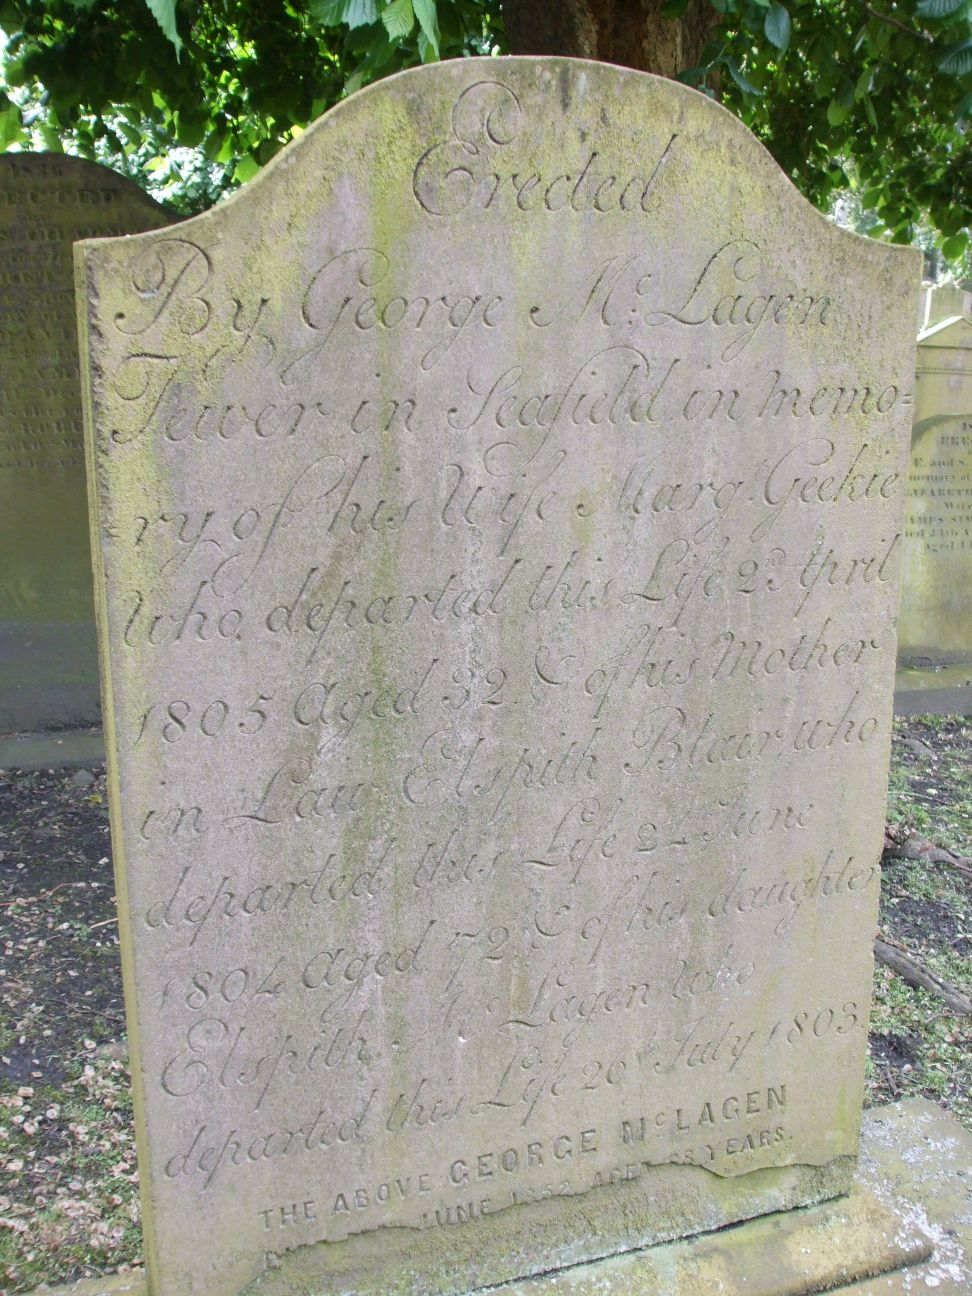 Erected
By George Mc: Lagen
Fewer in Seafield in memo=
ry of his Wife Marg.t Geekie
Who departed this Life 2d. April
1805 Aged 32. & of his Mother
in Law Elspith Blair, who
departed this Life 22 June
1804 Aged 72. & of his daughter
Elspith Mc Lagen Who
departed this Life 20th July 1803.
THE ABOVE GEORGE McLAGEN
JUNE 1852 AGED YEARS.
ECTED